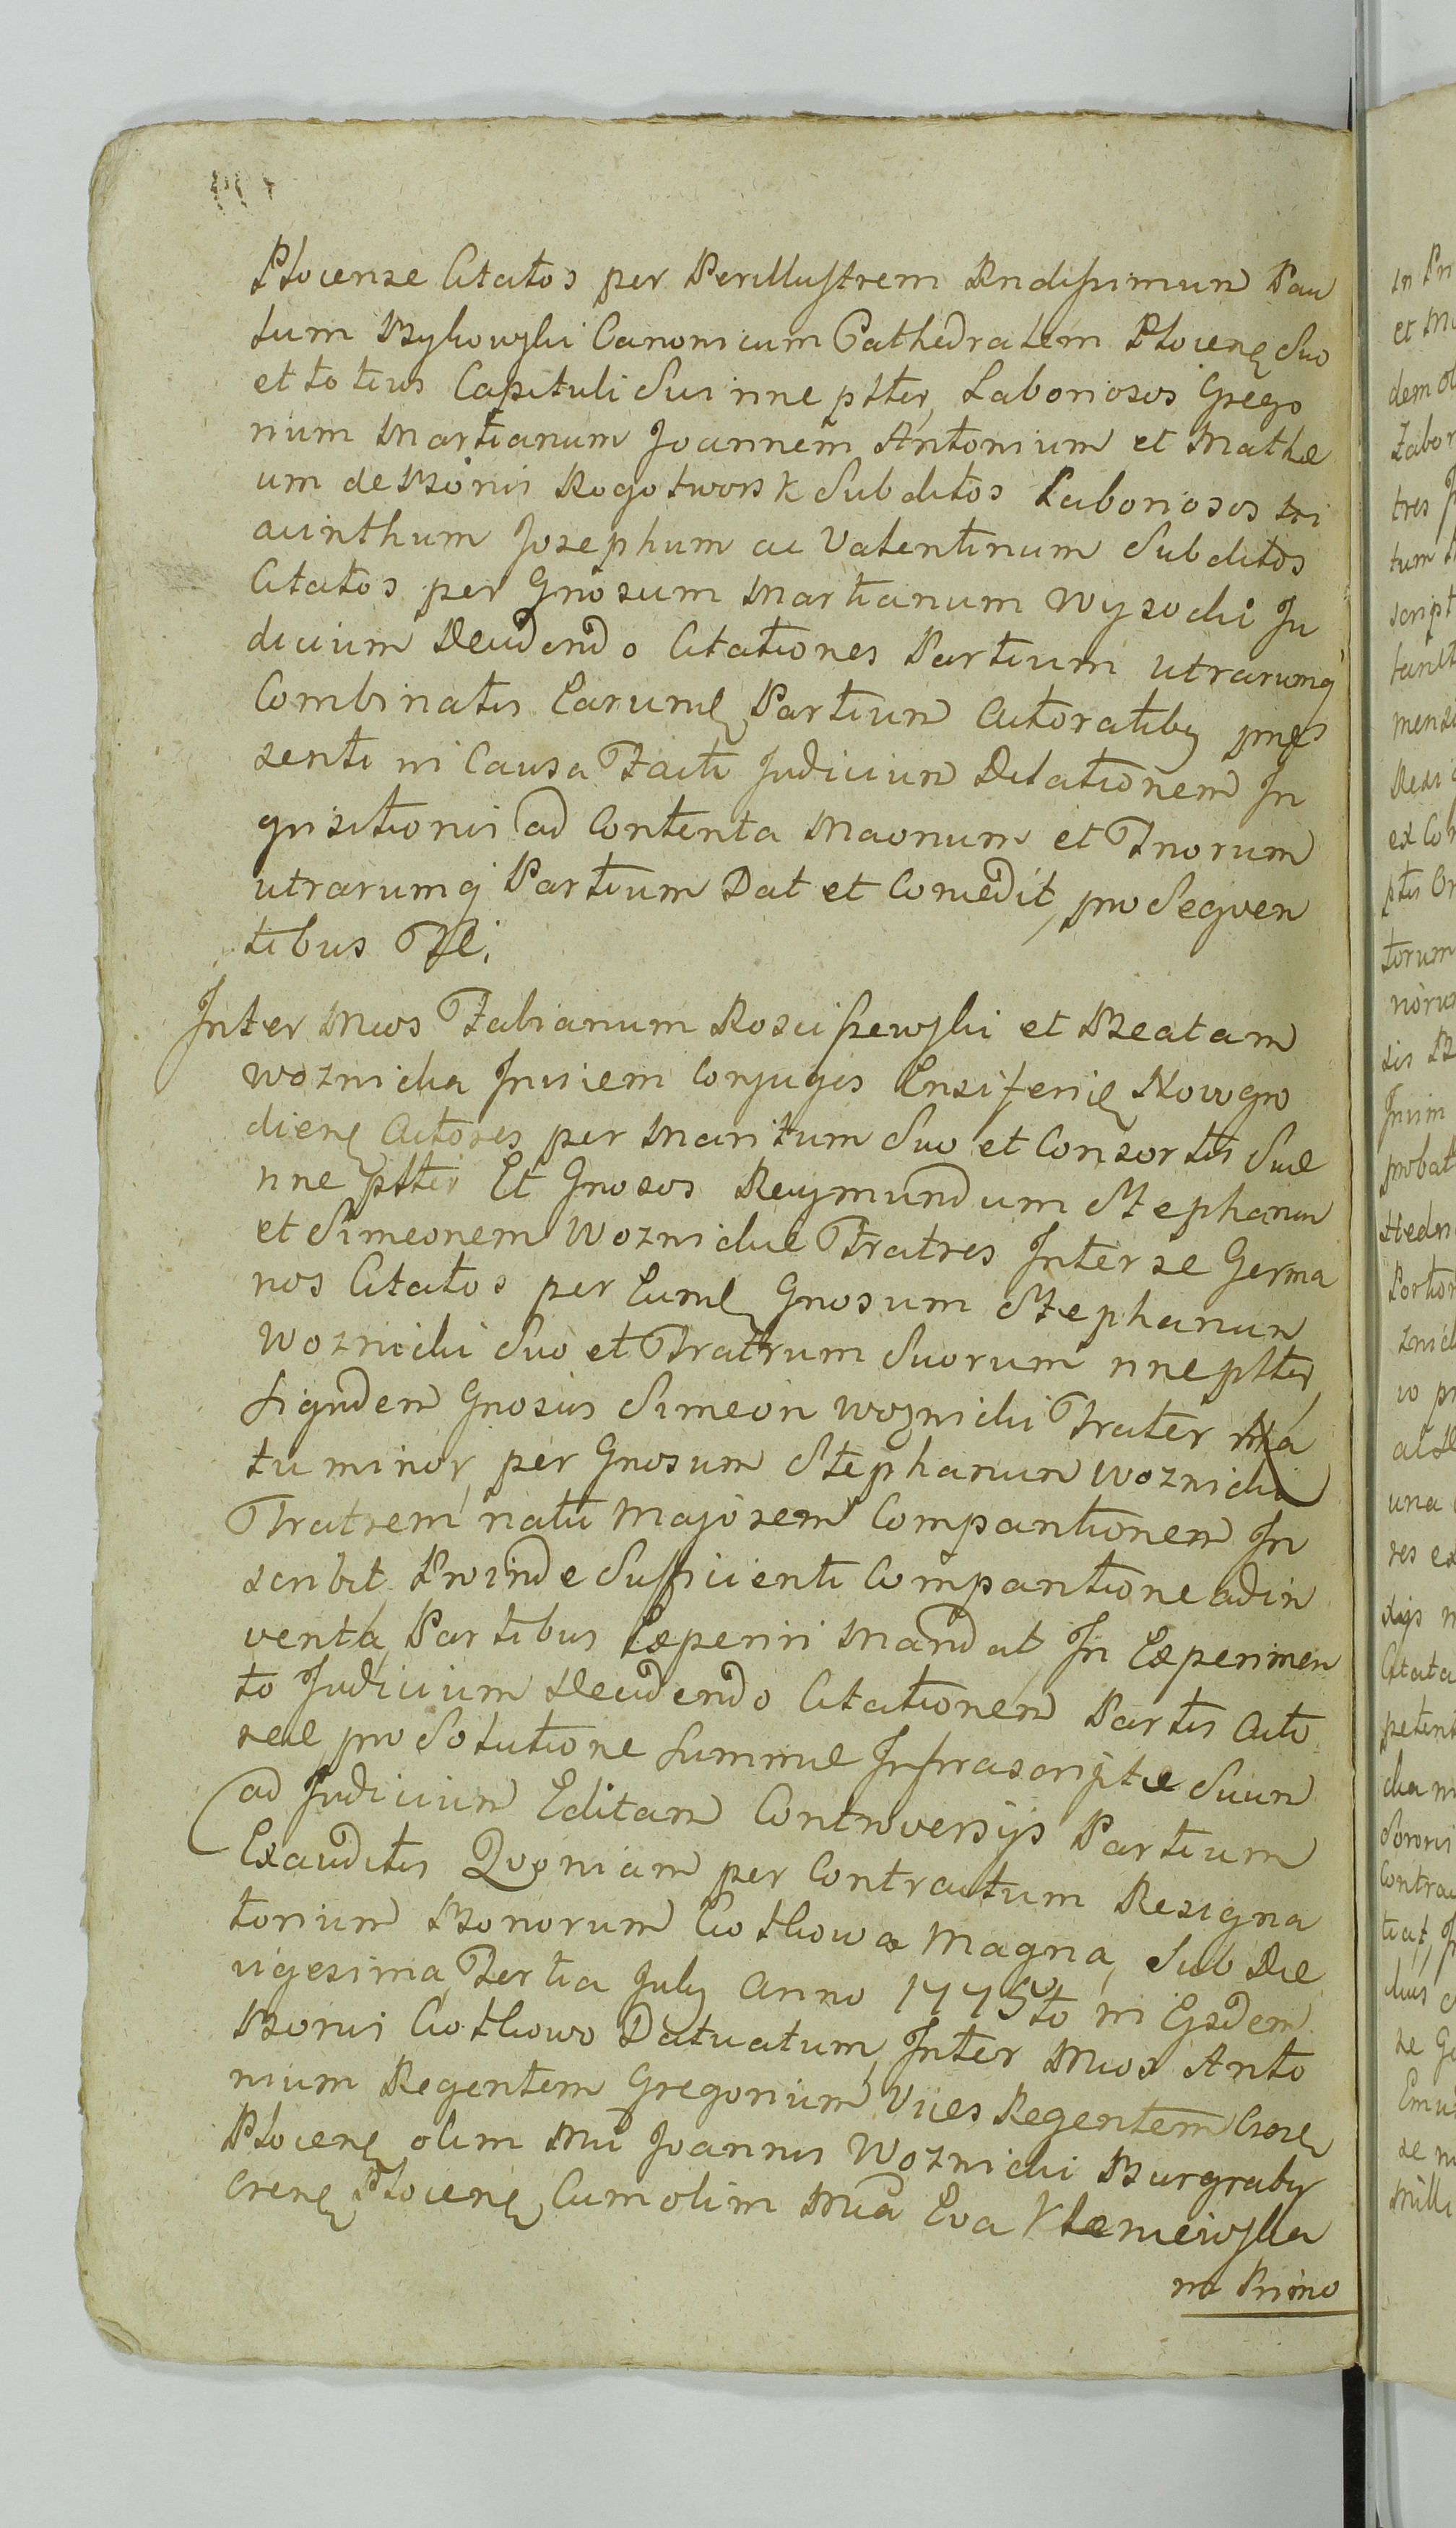 Plocense Citatos per Perillustrem Rndissimum Pau
lum Bykowski Canonicum Cathedralem Plocens Suo
et totius Capituli Sui nne ptter, Laboriosos Grego
rium Martianum Joannem Antonium et Mathe
um de Bonis Rogotworsk Subditos Laboriosos Hi
acinthum Josephum ac Valentinum Subditos
Citatos per Gnosum Martianum Wysocki Ju
dicium Decidendo Citationes Partium utrarumq
Combinatis Earund Partium Actoratibus prae
senti in Causa Facti Judicium Dilationem In
quisitionis ad Contenta Maonum et Tnorum
utrarumq Partium Dat et Concedit, pro Sequen
tibus Tli.
Inter Mcos Fabianum Roscissewski et Beatam
Woznicka Invicem Conjuges Ensiferid Nowogro
diens Actores per Maritum Suo et Consortis Suae
nne ptter Et Gnosos Raymundum Stephanum
et Simeonem Woznickie Fratres Inter se Germa
nos Citatos per Eund Gnosum Stephanum
Woznicki Suo et Fratrum Suorum nne ptter,
Siquidem Gnosus Simeon Woznicki Frater Na
tu minor, per Gnosum Stephanum Woznicki
Fratrem natu Majorem Comparitionem In
scribit, Proinde Sufficienti Comparitione adin
venta, Partibus Experiri Mandat, In Experimen
to Judicium Decidendo Citationem Partis Acto
reae, pro Solutione Summae Infrascriptae Suum
ad Judicium Editam Controversijs Partium
Exauditis Quoniam per Contractum Resigna
torium Bonorum Ciothowa Magna, Sub Die
vigesima Tertia July Anno 1775to in Ejsdem
Bonis Ciothowo Datuatum, Inter Mcos Anto
nium Regentem Gregorium Vices Regentem Crsem
Plocens olim Mci Joannis Woznicki Burgraby
Crens Plocens, Cum olim Mca Eva Kleniewska
in Primo